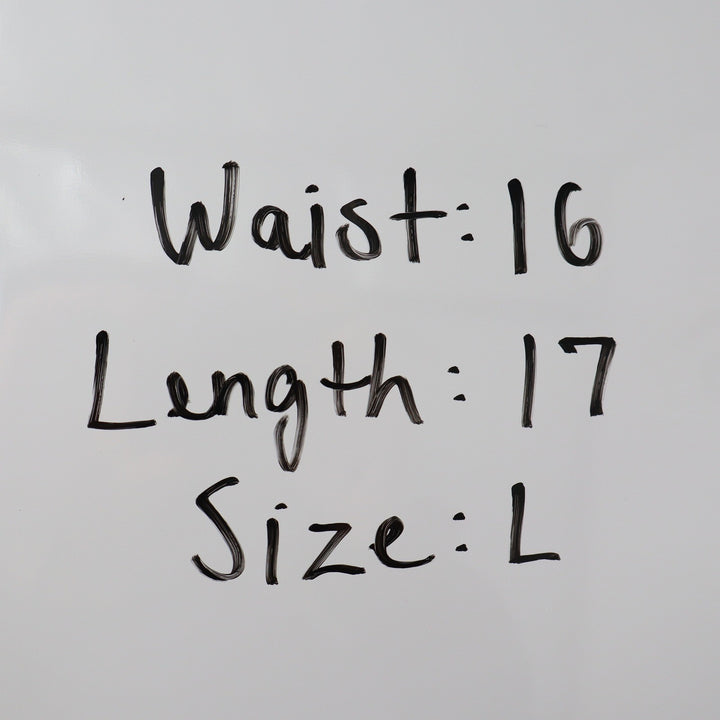 Waist: 16
Length: 17
Size: L